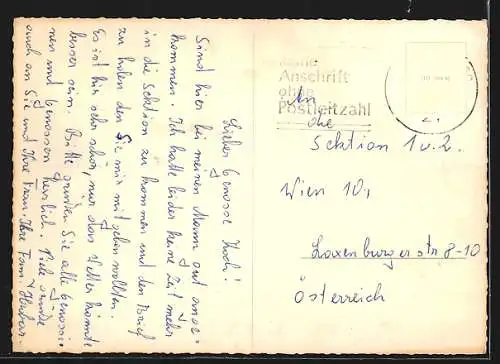 Lieber Genosse Koch!
Sind hier bei meinem Mann gut ange-
kommen. Ich hatte leider keine Zeit mehr
in die Sektion zu kommen und den Brief
zu holen den Sie mir mit geben wollten.
Es ist hir sehr schön, nur das Wetter könnte
besser sein. Bitte grüßen Sie alle Genossin-
nen und Genossen herzlich. Viele Grüße
auch an Sie und Ihre Frau. Ihre Fam.
Keine
Anschrift
ohne
Postleitzahl
An
die
Sektion 1 u. 2.
Wien 10,
Laxenburgerstr 8-10
Österreich